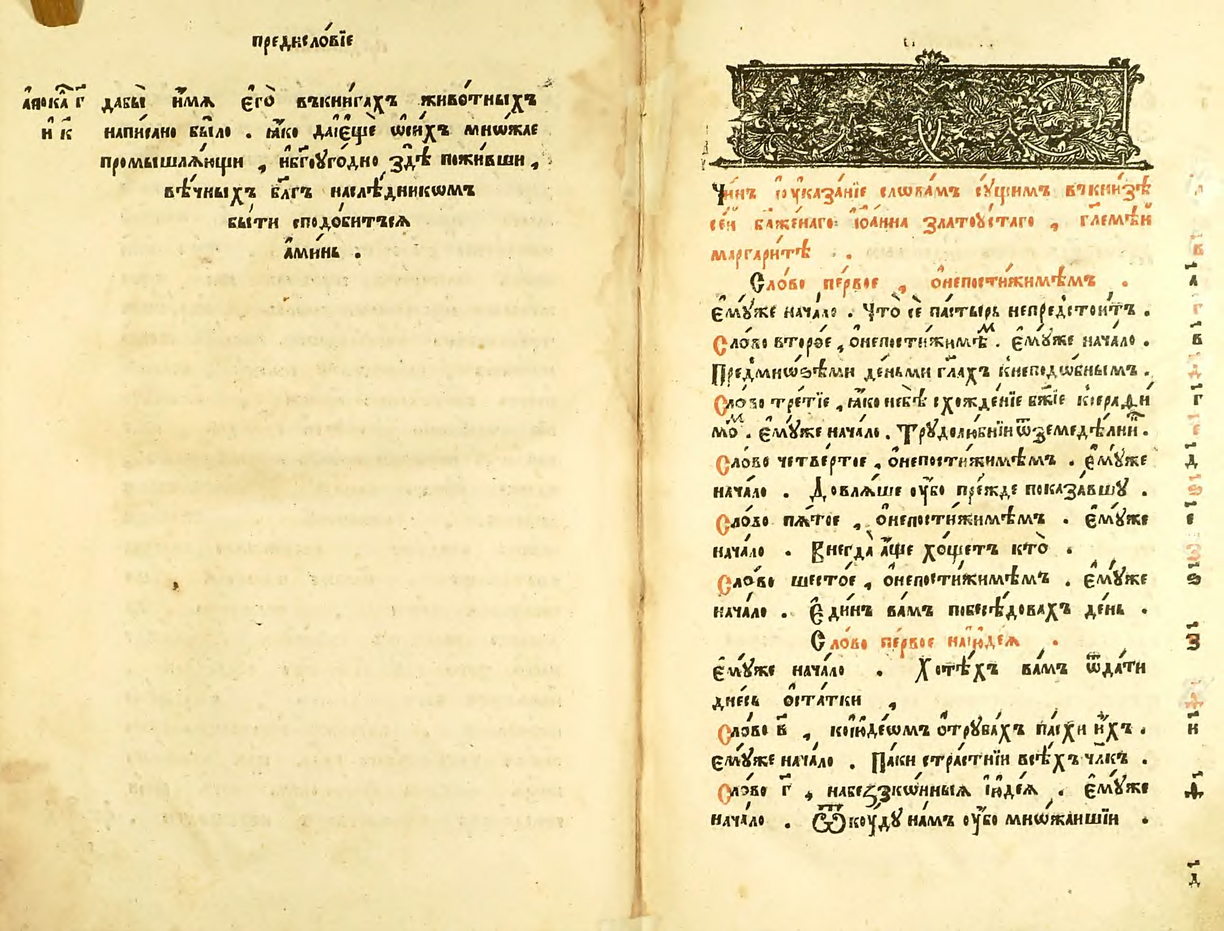 предисло́вїе
а҆пока҃ г҃ дабы̀ и҆́мѧ є҆гѡ̀ въкни́гахъ живо́тныхъ
и҆ к҃ написано бы́ло . ꙗ҆́ко да
промышлѧ́ющи , и҆бг҃оуго́дно здѣ̀ пожи́вши ,
вѣ́чныхъ бл҃гъ наслѣ́дникомъ
бы́ти сподо́битъсѧ
а҆ми́нь .
Чи́нъ и҆оуказа́нїе слова́мъ су́щимъ въкни́зѣ
се́й бл҃же́наго і҆ѡа́нна златоу́стаго , гл҃емѣ́й
маргари́тъ .
Сло́во пе́рвое , ѡ҆непости́жимѣмъ . а҃
є҆му́же нача́ло . Что̀ сѐ па́стырь непредстои́тъ .
Сло́во второ́е , ѡ҆непости́жимѣм . є҆му́же нача́ло . в҃
Пред̾мно́зѣми де́ньми гл҃ахъ кнеподо́бнымъ .
Сло́во тре́тїе , ꙗ҆́ко небѣ̀ схожде́нїе бж҃їе ксерафи г҃
мо́м . є҆му́же нача́ло . Трудолю́бнїи ѿземедѣ́лнїи .
Сло́во четве́ртое , ѡ҆непости́жимѣмъ . є҆му́же д҃
нача́ло . Довлѧ́ше ѹ҆́бо пре́жде показа́вшу .
Сло́во пѧ́тое , ѡ҆непости́жимѣмъ . є҆му́же е҃
нача́ло . Внегда̀ а҆́ще хо́щетъ кто̀ .
Сло́во шесто́е , ѡ҆непости́жимѣмъ . є҆му́же ѕ҃
нача́ло . Є҆ди́нъ ва́мъ побесѣ́довахъ де́нь .
Сло́во пе́рвое наи҆ю҆де́ѧ . з҃
є҆му́же нача́ло . Хотѣ́хъ ва́мъ ѿда́ти
дне́сь ѡ҆ста́тки ,
Сло́во в҃ , коі҆юде́ѡмъ ѡ҆труба́хъ па́схи и҆́хъ . и҃
є҆му́же нача́ло . Па́ки стра́стнїи всѣ́хъ чл҃къ .
Сло́во г҃ , набеззако́нныѧ і҆юде́ѧ . є҆му́же
нача́ло . Ѿкꙋ́дꙋ на́мъ ѹ҆́бо мно́жаишїи .
д҃